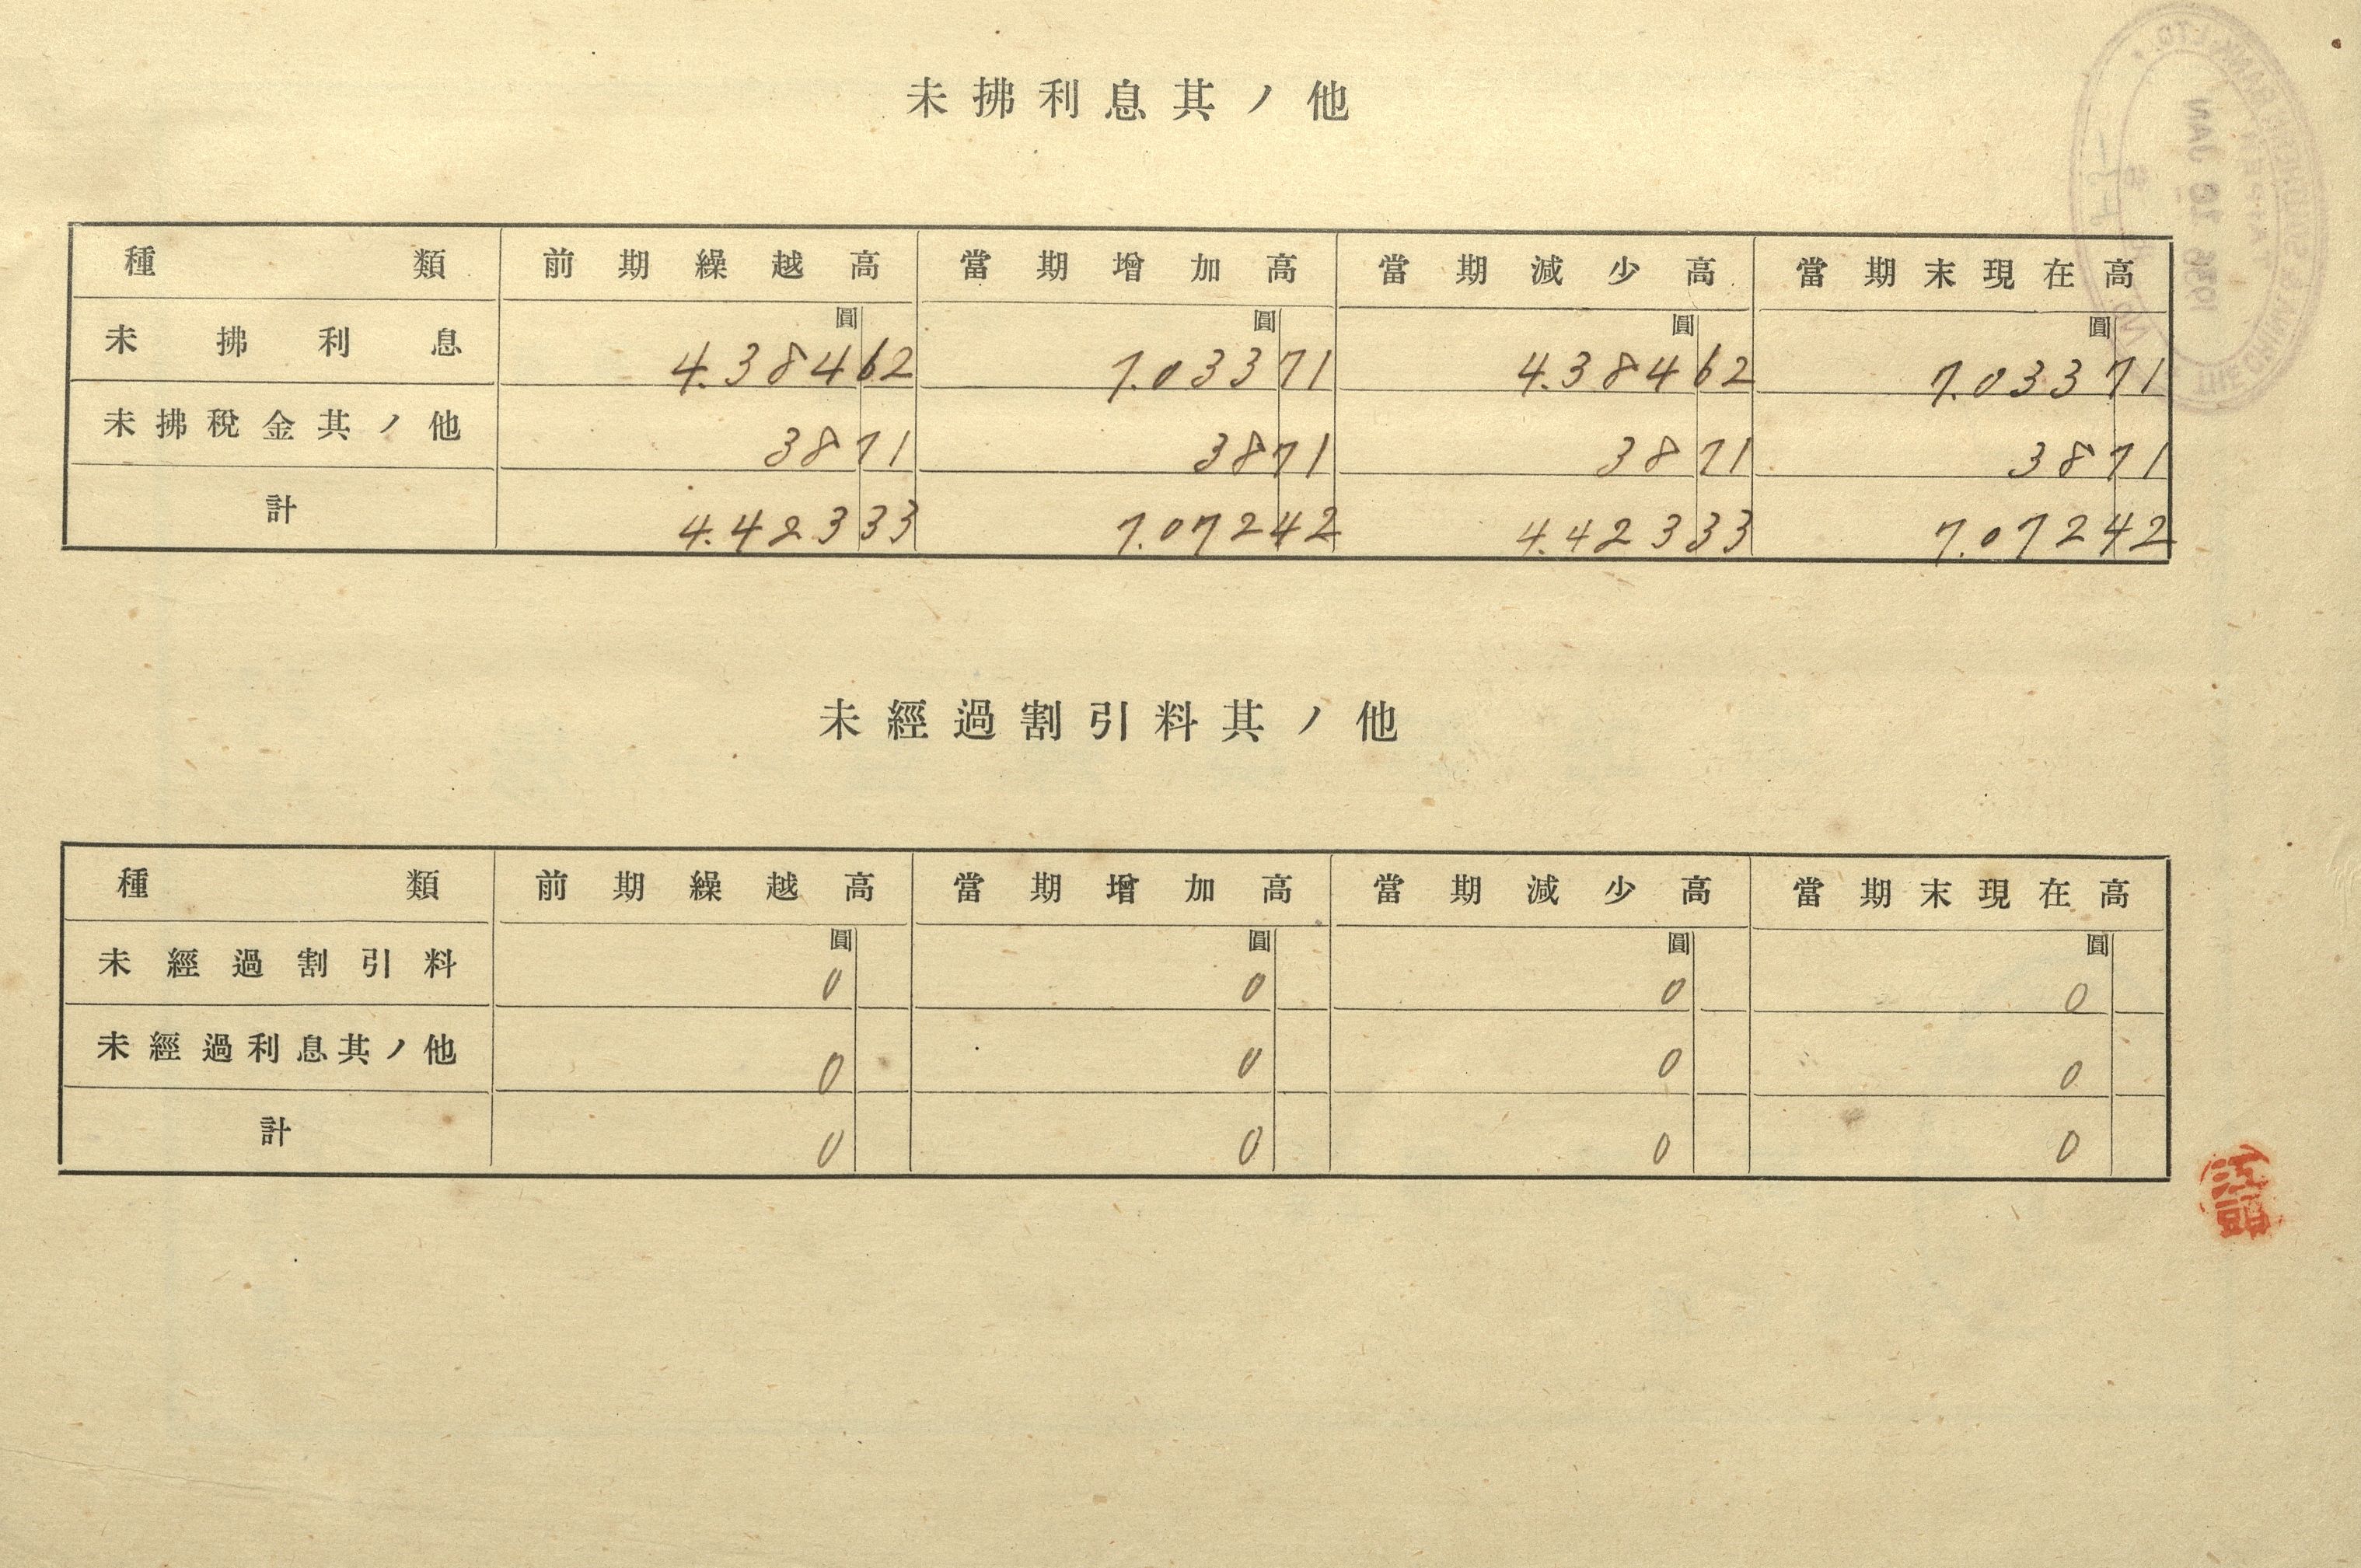 未拂利息其ノ他
種類 前期繰越高 當期增加高 當期減少高 當期末現在高
圓 圓 圓 圓
未拂利息 4.384 62 7.033 71 4.384 62 7.033 71
未拂税金其ノ他 38 71 38 71 38 71 38 71
計 4.423 33 7.072 42 4.423 33 7.072 42
未經過割引料其ノ他
種類 前期繰越高 當期增加高 當期減少高 當期末現在高
圓 圓 圓 圓
未經過割引料 0 0 0 0
未經過利息其ノ他 0 0 0 0
計 0 0 0 0